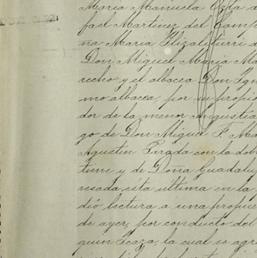 Maria Manuela
fael Martinez del Camp
na Maria Elizalitiurri d
Don Miguel Maria Ma
recho y el albacea Don Igna
mo albacea, por su propio
dor de la menor Angustia
go de Don Miguel P. Ma
Agustin Parada con la dob
tieni y de Doña Guadalu
resada esta ultima en la
dió lectura a una propue
de ayer, por conducto del
quin Icaza, la cual se agre